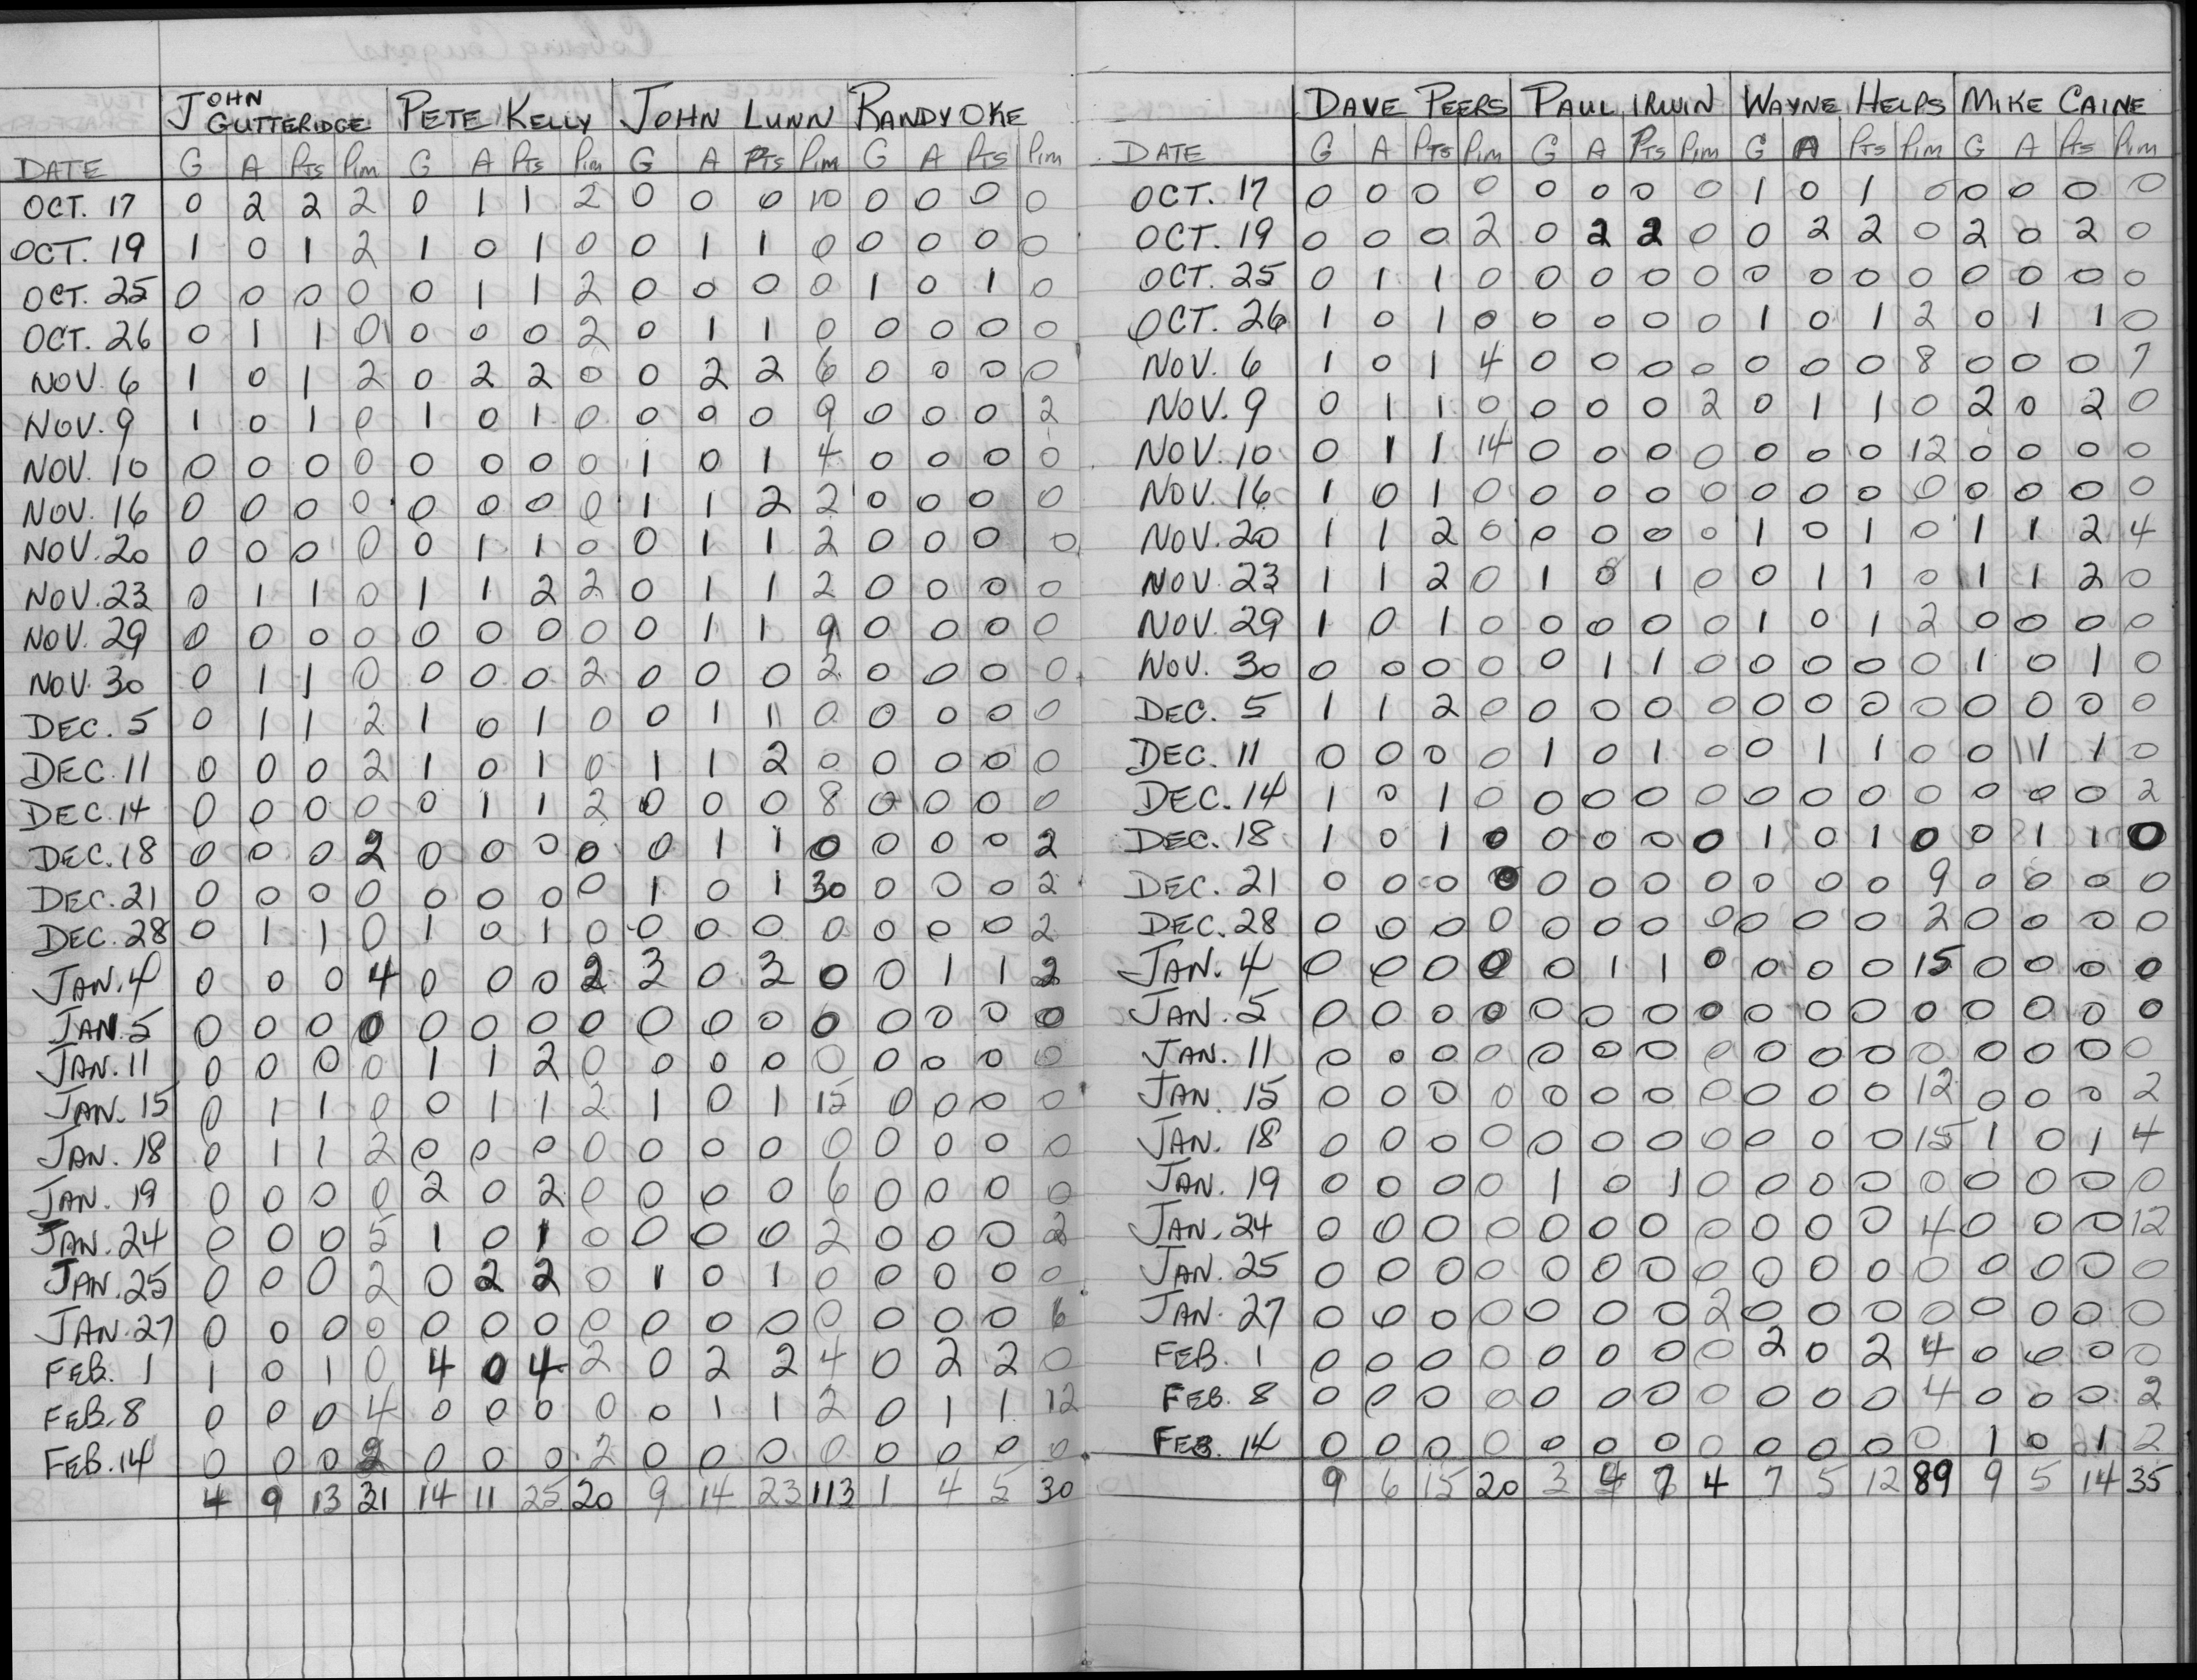 JOHN GUTTERIDGE PETE KELLY JOHN LUNN RANDY OKE
DATE G A Pts Pim G A Pts Pim G A Pts Pim G A Pts Pim
OCT. 17 0 2 2 2 0 1 1 2 0 0 0 10 0 0 0 0
OCT. 19 1 0 1 2 1 0 1 0 0 1 1 0 0 0 0 0
OCT. 25 0 0 0 0 0 1 1 2 0 0 0 0 1 0 1 0
OCT. 26 0 1 1 0 0 0 0 2 0 1 1 0 0 0 0 0
NOV. 6 1 0 1 2 0 2 2 0 0 2 2 6 0 0 0 0
NOV. 9 1 0 1 0 1 0 1 0 0 0 0 9 0 0 0 2
NOV. 10 0 0 0 0 0 0 0 0 1 0 1 4 0 0 0 0
NOV. 16 0 0 0 0 0 0 0 0 1 1 2 2 0 0 0 0
NOV. 20 0 0 0 0 0 1 1 0 0 1 1 2 0 0 0 0
NOV. 23 0 1 1 0 1 1 2 2 0 1 1 2 0 0 0 0
NOV. 29 0 0 0 0 0 0 0 0 0 1 1 9 0 0 0 0
NOV. 30 0 1 1 0 0 0 0 2 0 0 0 2 0 0 0 0
DEC. 5 0 1 1 2 1 0 1 0 0 1 1 0 0 0 0 0
DEC. 11 0 0 0 2 1 0 1 0 1 1 2 0 0 0 0 0
DEC. 14 0 0 0 0 0 1 1 2 0 0 0 8 0 0 0 0
DEC. 18 0 0 0 2 0 0 0 0 0 1 1 0 0 0 0 2
DEC. 21 0 0 0 0 0 0 0 0 1 0 1 30 0 0 0 2
DEC. 28 0 1 1 0 1 0 1 0 0 0 0 0 0 0 0 2
JAN. 4 0 0 0 4 0 0 0 2 3 0 3 0 0 1 1 2
JAN. 5 0 0 0 0 0 0 0 0 0 0 0 0 0 0 0 0
JAN. 11 0 0 0 0 1 1 2 0 0 0 0 0 0 0 0 0
JAN. 15 0 1 1 0 0 1 1 2 1 0 1 15 0 0 0 0
JAN. 18 0 1 1 2 0 0 0 0 0 0 0 0 0 0 0 0
JAN. 19 0 0 0 0 2 0 2 0 0 0 0 6 0 0 0 0
JAN. 24 0 0 0 5 1 0 1 0 0 0 0 2 0 0 0 2
JAN. 25 0 0 0 2 0 2 2 0 1 0 1 0 0 0 0 0
JAN. 27 0 0 0 0 0 0 0 0 0 0 0 0 0 0 0 6
FEB. 1 1 0 1 0 4 0 4 2 0 2 2 4 0 2 2 0
FEB. 8 0 0 0 4 0 0 0 0 0 1 1 2 0 1 1 12
FEB. 14 0 0 0 2 0 0 0 2 0 0 0 0 0 0 0 0
4 9 13 31 14 11 25 20 9 14 23 113 1 4 5 30
DAVE PEERS PAUL IRWIN WAYNE HELPS MIKE CAINE
DATE G A Pts Pim G A Pts Pim G A Pts Pim G A Pts Pim
OCT. 17 0 0 0 0 0 0 0 0 1 0 1 0 0 0 0 0
OCT. 19 0 0 0 2 0 2 2 0 0 2 2 0 2 0 2 0
OCT. 25 0 1 1 0 0 0 0 0 0 0 0 0 0 0 0 0
OCT. 26 1 0 1 0 0 0 0 0 1 0 1 2 0 1 1 0
NOV. 6 1 0 1 4 0 0 0 0 0 0 0 8 0 0 0 7
NOV. 9 0 1 1 0 0 0 0 2 0 1 1 0 2 0 2 0
NOV. 10 0 1 1 14 0 0 0 0 0 0 0 12 0 0 0 0
NOV. 16 1 0 1 0 0 0 0 0 0 0 0 0 0 0 0 0
NOV. 20 1 1 2 0 0 0 0 0 1 0 1 0 1 1 2 4
NOV. 23 1 1 2 0 1 0 1 0 0 1 1 0 1 1 2 0
NOV. 29 1 0 1 0 0 0 0 0 1 0 1 2 0 0 0 0
NOV. 30 0 0 0 0 0 1 1 0 0 0 0 0 1 0 1 0
DEC. 5 1 1 2 0 0 0 0 0 0 0 0 0 0 0 0 0
DEC. 11 0 0 0 0 1 0 1 0 0 1 1 0 0 1 1 0
DEC. 14 1 0 1 0 0 0 0 0 0 0 0 0 0 0 0 2
DEC. 18 1 0 1 0 0 0 0 0 1 0 1 0 0 1 1 0
DEC. 21 0 0 0 0 0 0 0 0 0 0 0 9 0 0 0 0
DEC. 28 0 0 0 0 0 0 0 0 0 0 0 2 0 0 0 0
JAN. 4 0 0 0 0 0 1 1 0 0 0 0 15 0 0 0 0
JAN. 5 0 0 0 0 0 0 0 0 0 0 0 0 0 0 0 0
JAN. 11 0 0 0 0 0 0 0 0 0 0 0 0 0 0 0 0
JAN. 15 0 0 0 0 0 0 0 0 0 0 0 12 0 0 0 2
JAN. 18 0 0 0 0 0 0 0 0 0 0 0 15 1 0 1 4
JAN. 19 0 0 0 0 1 0 1 0 0 0 0 0 0 0 0 0
JAN. 24 0 0 0 0 0 0 0 0 0 0 0 4 0 0 0 12
JAN. 25 0 0 0 0 0 0 0 0 0 0 0 0 0 0 0 0
JAN. 27 0 0 0 0 0 0 0 2 0 0 0 0 0 0 0 0
FEB. 1 0 0 0 0 0 0 0 0 2 0 2 4 0 0 0 0
FEB. 8 0 0 0 0 0 0 0 0 0 0 0 4 0 0 0 2
FEB. 14 0 0 0 0 0 0 0 0 0 0 0 0 1 0 1 2
9 6 15 20 3 4 7 4 7 5 12 89 9 5 14 35